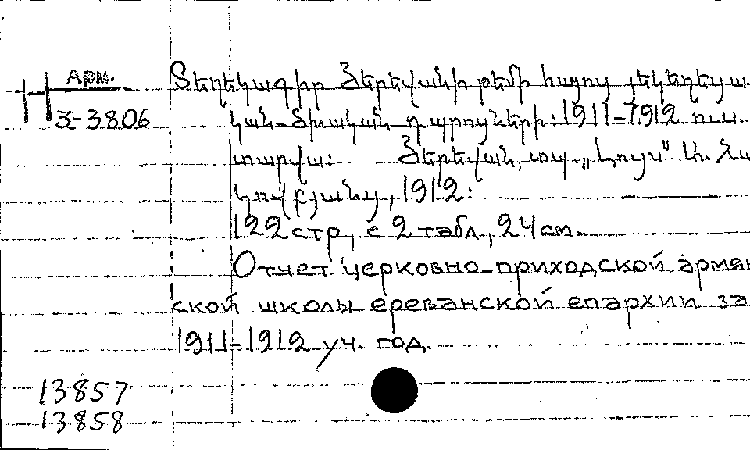 Арм.
Տեղեկագիր Երեվանի թեմի հայոց եկեղեցա
3-3806
կան-ծխական դպրոցների: 1911-1912 ուս.
տարվա: Երեվան, տպ. „Լույս"
1912:
122 стр, с 2 табл., 24 см.
Отчет церковно-приходской армян
ской школы ереванской епархии за
1911-1912 уч. год.
13857
13858